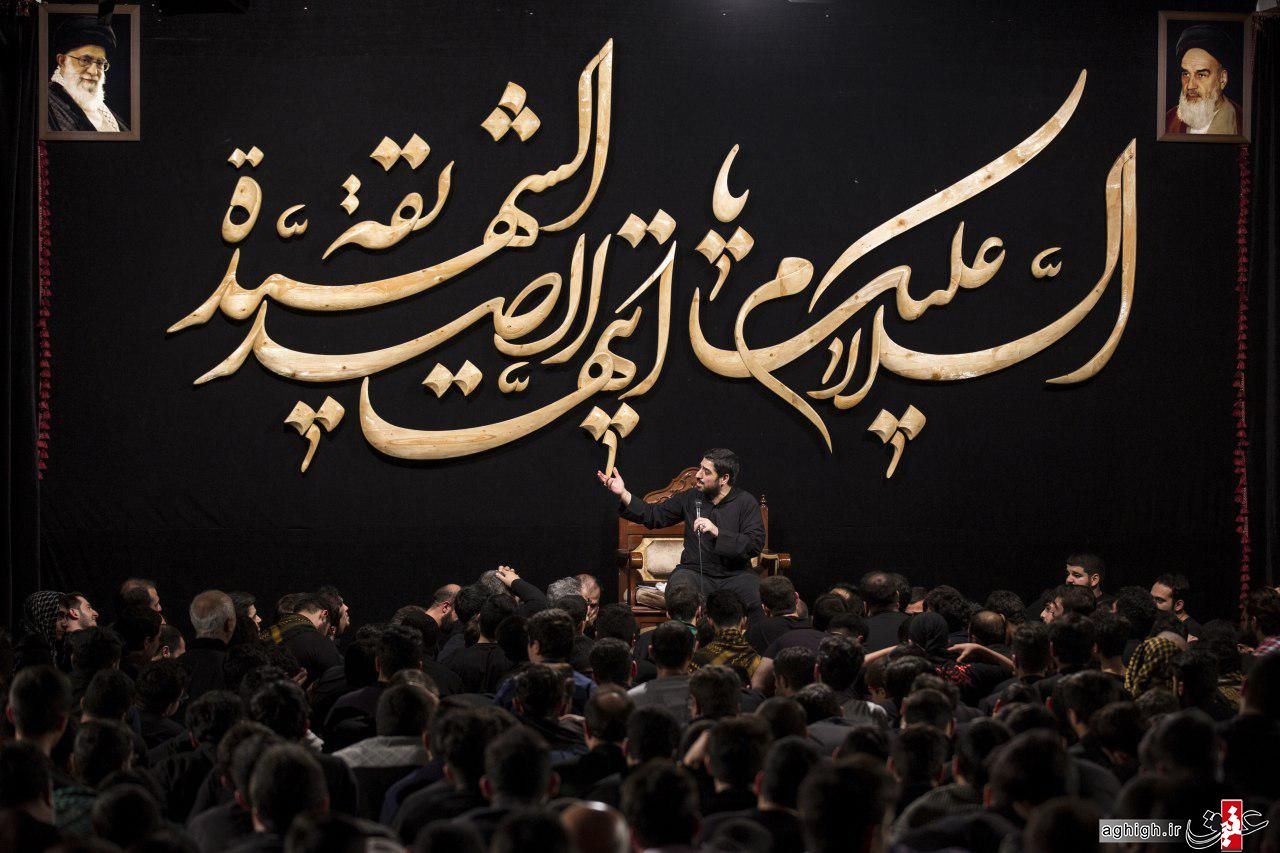 السلام علیکِ یا
ایتها الصدیقة
الشهیدة
aghigh.ir
عقیق